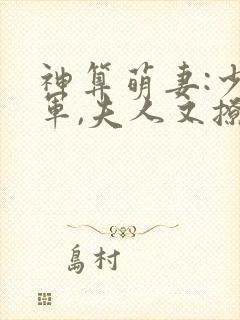 神算萌妻:少
军,夫人又撩
島村